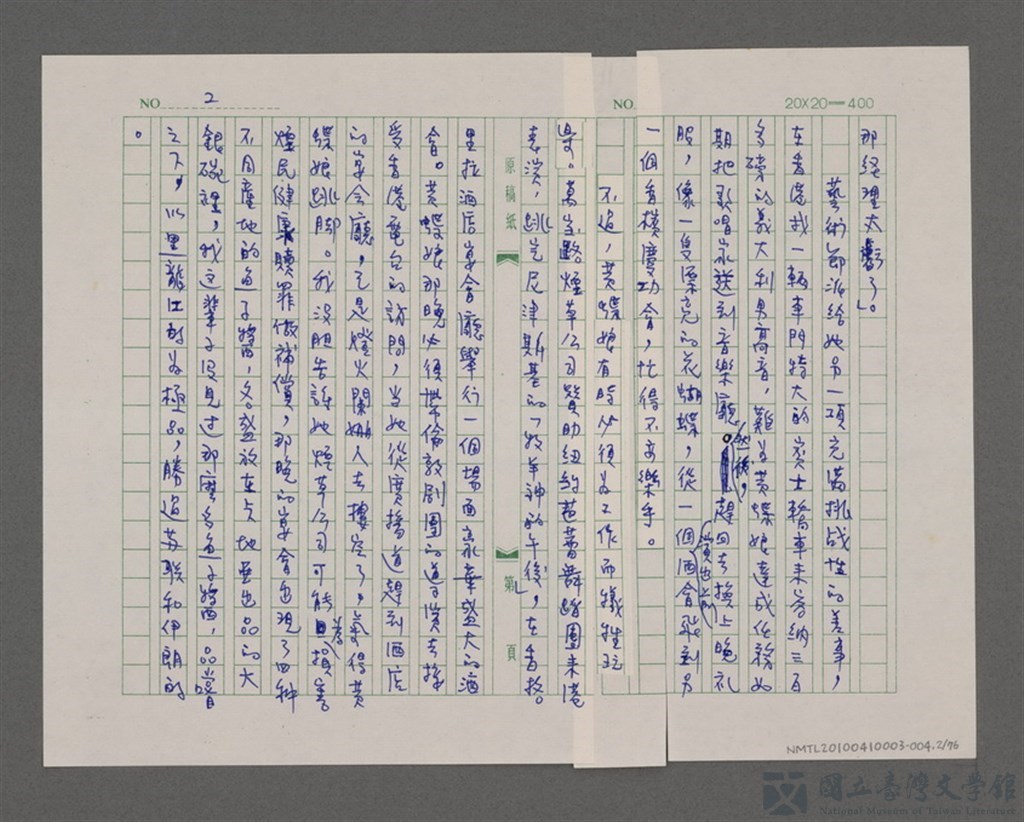 NO.
20X20=400
那經理大虧了」。
藝術節派給她另一項充滿挑战性的差事，
在香港找一輛車門特大的賓士轎車來容納三百
多磅的義大利男高音，難为黃蝶娘達成任務如
期把歌唱家送到音樂廳。然後，趕回去換上晚礼
服，像一隻漂亮的花蝴蝶，從一個酒會飛到另
一個香檳慶功會，忙得不亦樂乎。
不过，黃蝶娘有時必須为工作而犧牲玩
樂。萬宝路煙草公司贊助紐約芭蕾舞蹈團來港
表演，跳完尼津斯基的「牧羊神的午後」，在香格
原稿紙
第 頁
NO. 2
里拉酒店宴會廳舉行一個場面豪華盛大的酒
會。黃蝶娘那晚必須帶倫敦劇團的導演去接
受香港電台的訪問，当她從廣播道趕到酒店
的宴会廳，已是燈火闌珊人去樓空了，氣得黃
蝶娘跳脚。我沒胆告訴她煙草公司可能為損害
煙民健康贖罪做補償，那晚的宴會出現了四种
不同產地的魚子醬，各盛放在 出品的大
銀碗裡，我这輩子沒見过那麼多魚子醬，品嚐
之下，以黑龍江的为極品，勝過苏联和伊朗的
。
NMTL20100410003-004.2/76
國立臺灣文學館
National Museum of Taiwan Literature